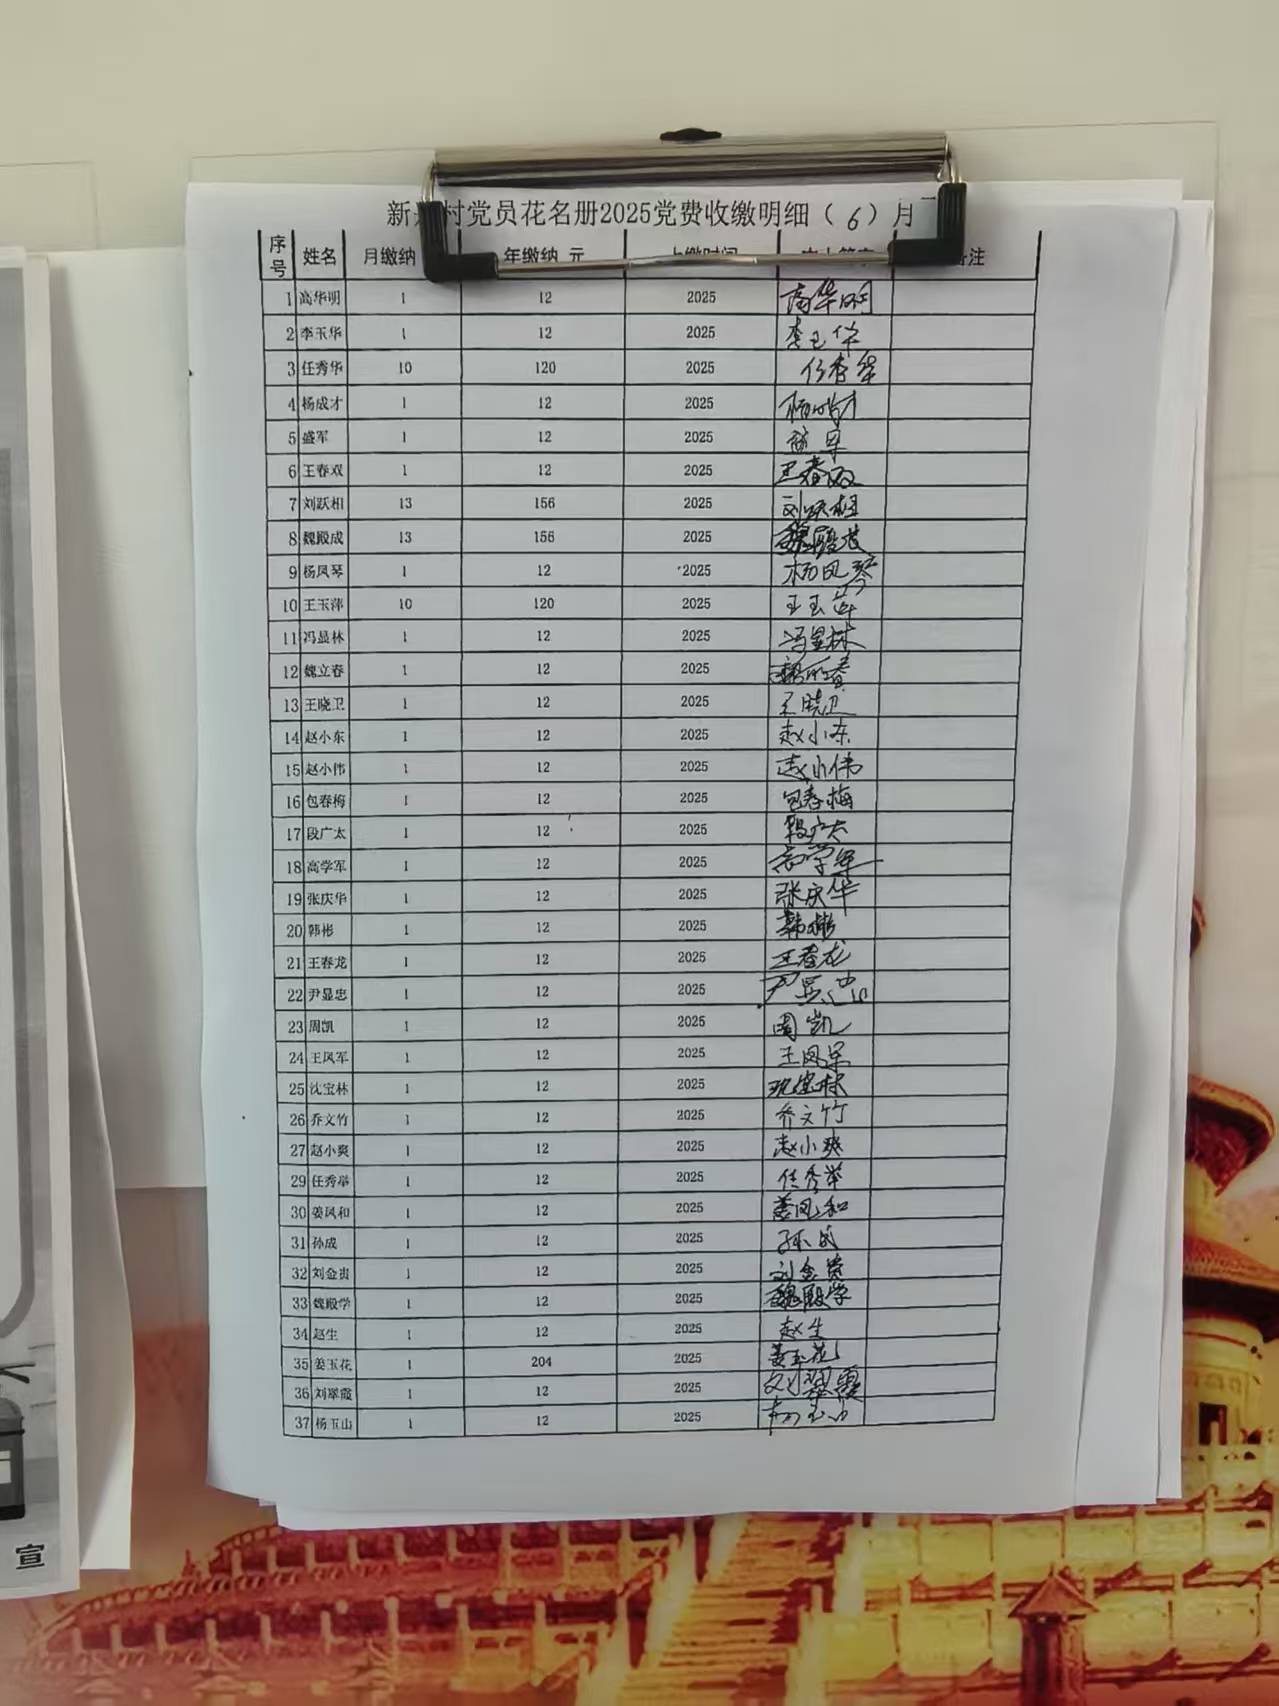 新 村党员花名册2025党费收缴明细（6）月
序号 姓名 月缴纳 年缴纳 元 上缴时间 本人签字 备注
1 高华明 1 12 2025 高华明
2 李玉华 1 12 2025 李玉华
3 任秀华 10 120 2025 任秀华
4 杨成才 1 12 2025 杨成才
5 盛军 1 12 2025 盛军
6 王春双 1 12 2025 王春双
7 刘跃相 13 156 2025 刘跃相
8 魏殿成 13 156 2025 魏殿成
9 杨凤琴 1 12 2025 杨凤琴
10 王玉萍 10 120 2025 王玉萍
11 冯显林 1 12 2025 冯显林
12 魏立春 1 12 2025 魏立春
13 王晓卫 1 12 2025 王晓卫
14 赵小东 1 12 2025 赵小东
15 赵小伟 1 12 2025 赵小伟
16 包春梅 1 12 2025 包春梅
17 段广太 1 12 2025 段广太
18 高学军 1 12 2025 高学军
19 张庆华 1 12 2025 张庆华
20 韩彬 1 12 2025 韩彬
21 王春龙 1 12 2025 王春龙
22 尹显忠 1 12 2025 尹显忠
23 周凯 1 12 2025 周凯
24 王凤军 1 12 2025 王凤军
25 沈宝林 1 12 2025 沈宝林
26 乔文竹 1 12 2025 乔文竹
27 赵小爽 1 12 2025 赵小爽
29 任秀举 1 12 2025 任秀举
30 姜凤和 1 12 2025 姜凤和
31 孙成 1 12 2025 孙成
32 刘金贵 1 12 2025 刘金贵
33 魏殿学 1 12 2025 魏殿学
34 赵生 1 12 2025 赵生
35 姜玉花 1 204 2025 姜玉花
36 刘翠霞 1 12 2025 刘翠霞
37 杨玉山 1 12 2025 杨玉山
宣